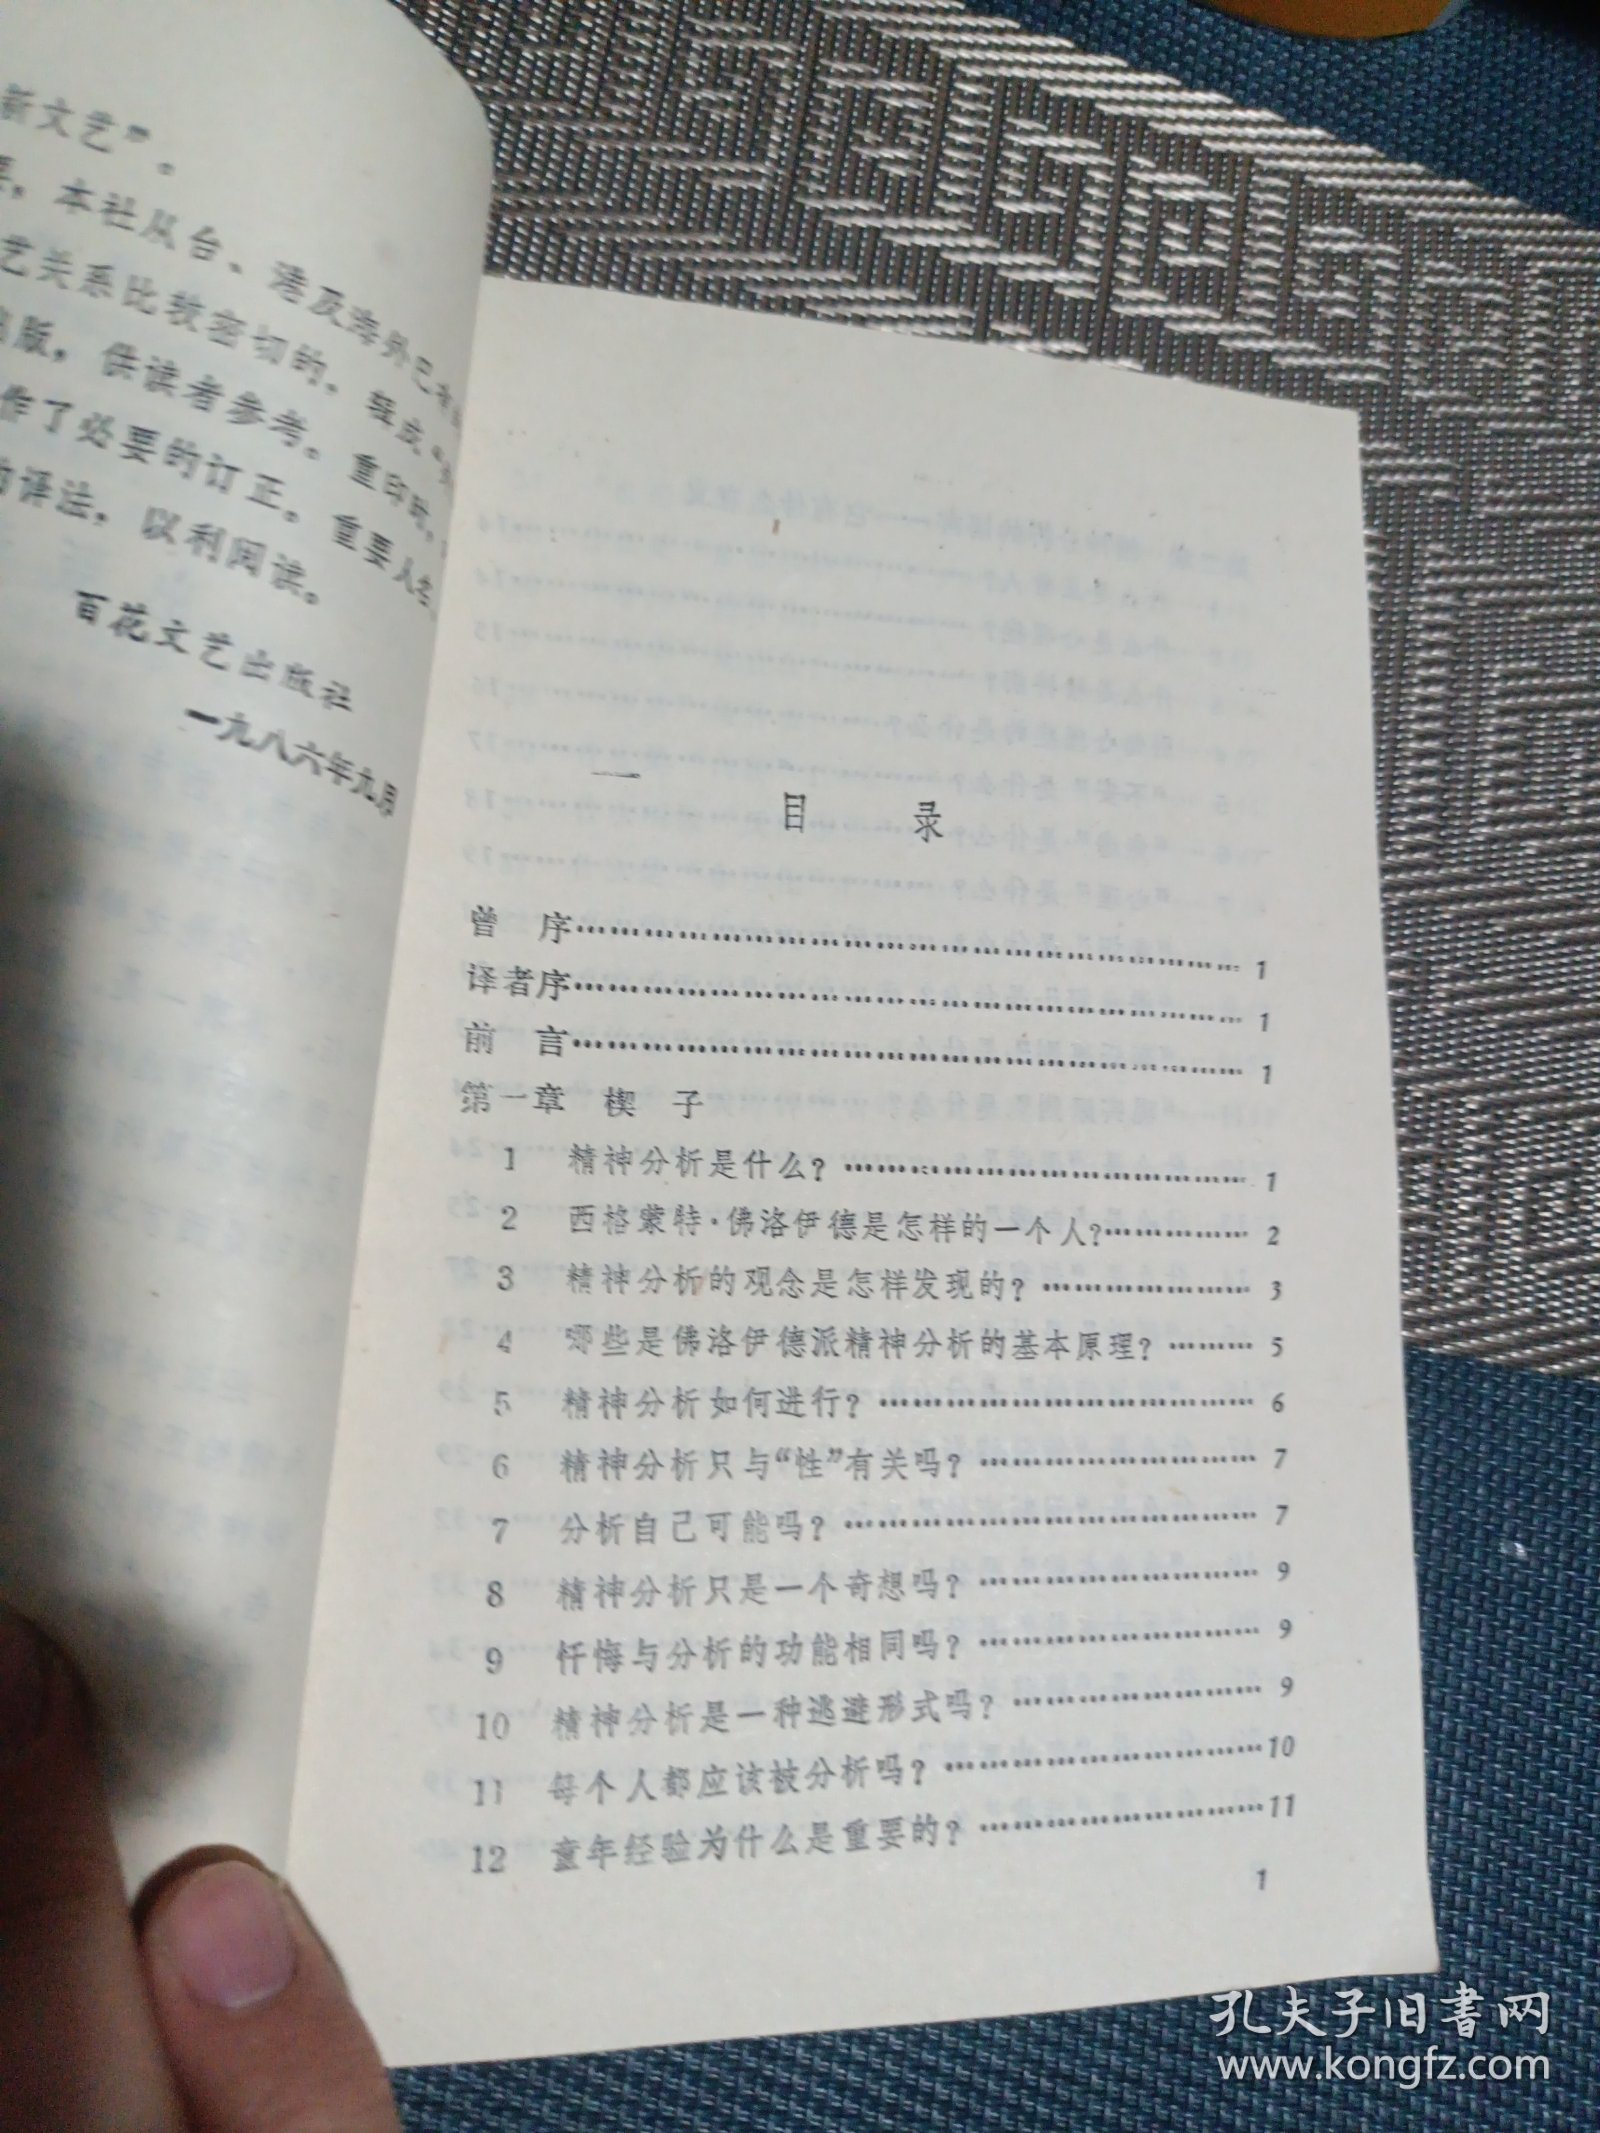 新文艺”。
本社从台、港及海外已
艺关系比较密切的，辑成
出版，供读者参考。重印时，
作了必要的订正。重要人名
的译法，以利阅读。
百花文艺出版社
一九八六年九月
目 录
曾 序 1
译者序 1
前 言 1
第一章 楔 子
1 精神分析是什么? 1
2 西格蒙特·佛洛伊德是怎样的一个人? 2
3 精神分析的观念是怎样发现的? 3
4 哪些是佛洛伊德派精神分析的基本原理? 5
5 精神分析如何进行? 6
6 精神分析只与“性”有关吗? 7
7 分析自己可能吗? 7
8 精神分析只是一个奇想吗? 9
9 忏悔与分析的功能相同吗? 9
10 精神分析是一种逃避形式吗? 9
11 每个人都应该被分析吗? 10
12 童年经验为什么是重要的? 11
1
孔夫子旧書网
www.kongfz.com